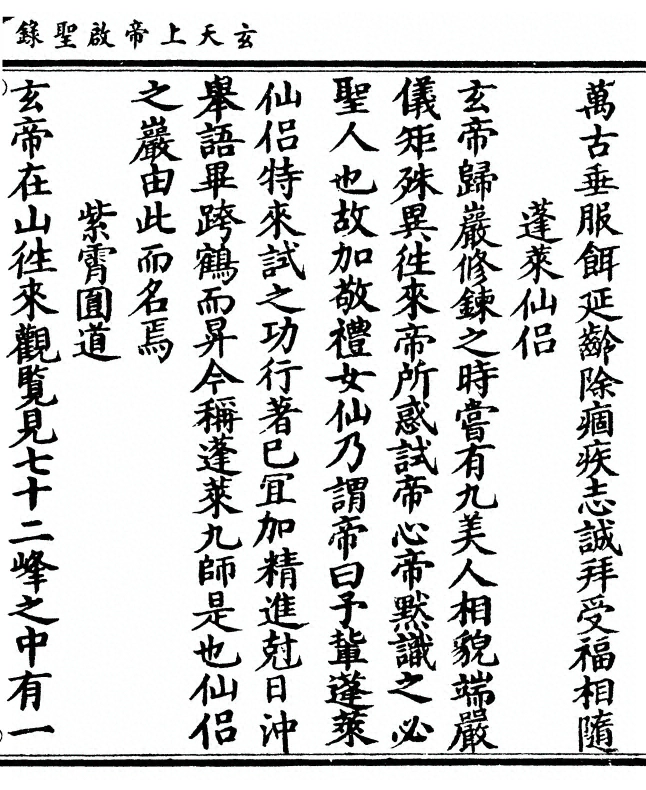 玄天上帝啟聖錄
萬古垂服餌延齡除痼疾志誠拜受福相隨
蓬萊仙侶
玄帝歸巖修鍊之時嘗有九美人相貌端嚴
儀矩殊異徃來帝所惑試帝心帝默識之必
聖人也故加敬禮女仙乃謂帝曰予輩蓬萊
仙侶特來試之功行著已冝加精進尅日沖
舉語畢跨鶴而昇今稱蓬萊九師是也仙侶
之巖由此而名焉
紫霄圓道
玄帝在山徃來觀覽見七十二峰之中有一